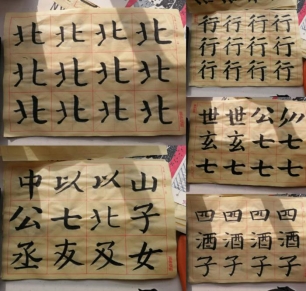 北北北北
北北北北
北北北北
行行行行
行行行行
行行行行
世世公
玄玄七七
七七七七
中以以山
公七北子
丞友及女
四四四四
酒酒酒酒
子子子子